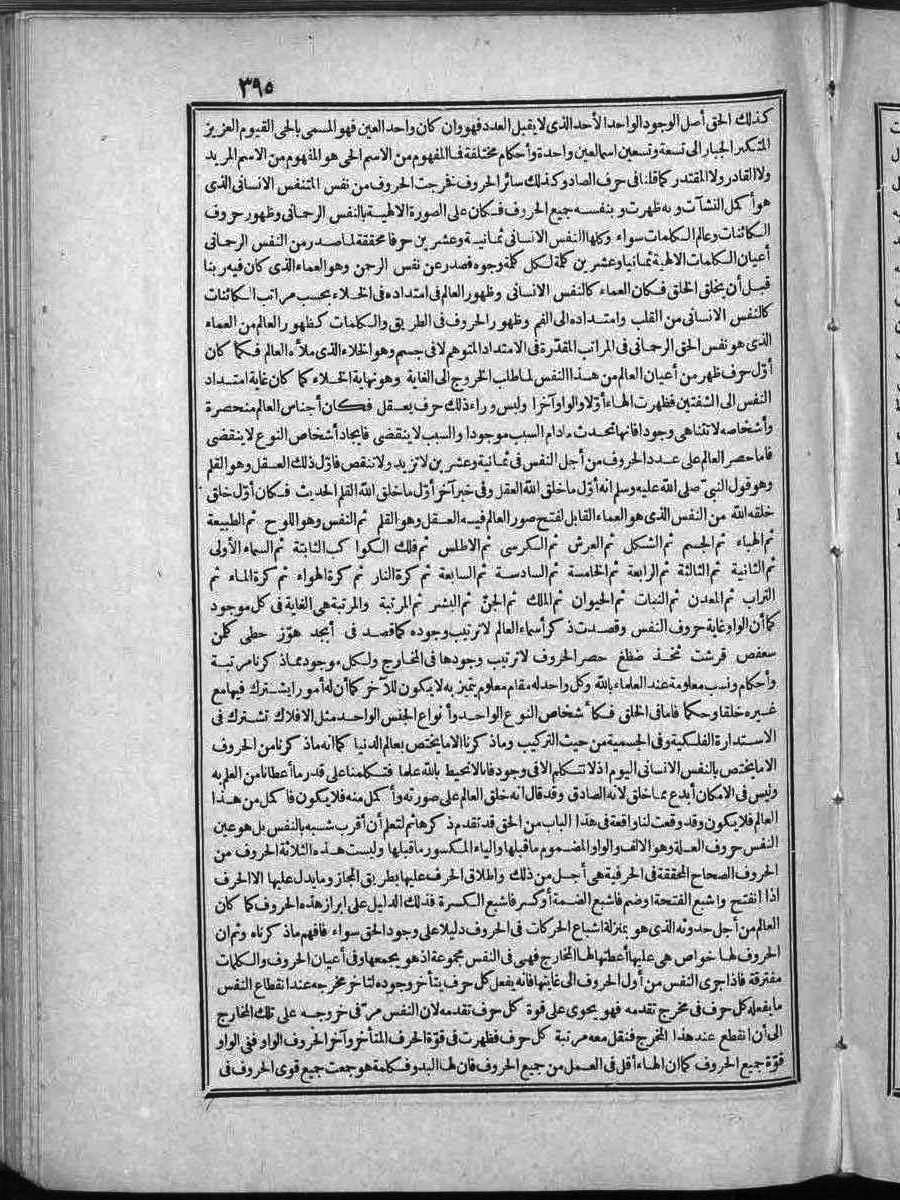 ٣٩٥
كذلك الحق أصل الوجود الواحد الأحد الذى لا يقبل العدد فهو وان كان واحد العين فهو المسمى بالحى القيوم العزيز
المتكبر الجبار الى تسعة وتسعين اسما لعين واحدة وأحكام مختلفة فما المفهوم من الاسم الحى هو المفهوم من الاسم المريد
ولا القادر ولا المقتدر كما قلنا فى حرف الصاد وكذلك سائر الحروف نخرجت الحروف من نفس المتنفس الانسانى الذى
هو أكمل النشآت وبه ظهرت وبنفسه جميع الحروف فكان على الصورة الالهية بالنفس الرحمانى وظهور حروف
الكائنات وعالم الكلمات سواء وكلها النفس الانسانى ثمانية وعشرين حرفا محققة لما صدر من النفس الرحمانى
أعيان الكلمات الالهية ثمانيا وعشرين كلمة لكل كلمة وجوه فصدر عن نفس الرحمن وهو العماء الذى كان فيه ربنا
قبل أن يخلق الخلق فكان العماء كالنفس الانسانى وظهور العالم فى امتداده فى الخلاء بحسب مراتب الكائنات
كالنفس الانسانى من القلب وامتداده الى الفم وظهور الحروف فى الطريق والكلمات كظهور العالم من العماء
الذى هو نفس الحق الرحمانى فى المراتب المقدّرة فى الامتداد المتوهم لا فى جسم وهو الخلاء الذى ملأه العالم فكما كان
أوّل حرف ظهر من أعيان العالم من هذا النفس لما طلب الخروج الى الغاية وهو نهاية الخلاء كما كان غاية امتداد
النفس الى الشفتين فظهرت الهاء أوّلا والواو آخرا وليس وراء ذلك حرف يعقل فكان أجناس العالم منحصرة
وأشخاصه لا تتناهى وجودا فانها تحدث مادام السبب موجودا والسبب لا ينقضى فايجاد أشخاص النوع لا ينقضى
فما حصر العالم على عدد الحروف من أجل النفس فى ثمانية وعشرين لا تزيد ولا تنقص فاوّل ذلك العقل وهو القلم
وهو قول النبىّ صلى الله عليه وسلم انه أوّل ما خلق الله العقل وفى خبر آخر أوّل ما خلق الله القلم الحديث فكان أوّل خلق
خلقه الله من النفس الذى هو العماء القابل لفتح صور العالم فيه العقل وهو القلم ثم النفس وهو اللوح ثم الطبيعة
ثم الهباء ثم الجسم ثم الشكل ثم العرش ثم الكرسى ثم الاطلس ثم فلك الكواكب الثابتة ثم السماء الأولى
ثم الثانية ثم الثالثة ثم الرابعة ثم الخامسة ثم السادسة ثم السابعة ثم كرة النار ثم كرة الهواء ثم كرة الماء ثم
التراب ثم المعدن ثم النبات ثم الحيوان ثم الملك ثم الجنّ ثم البشر ثم المرتبة والمرتبة هى الغاية فى كل موجود
كما أن الواو غاية حروف النفس وقصدت ذكر أسماء العالم لا ترتيب وجوده كما قصد فى أبجد هوّز حطى كلمن
سعفص قرشت ثخذ ضظغ حصر الحروف لا ترتيب وجودها فى المخارج ولكل موجود مما ذكرنا مرتبة
وأحكام ونسب معلومة عند العلماء بالله وكل واحد له مقام معلوم يتميز به لا يكون للآخر كما أن له أمورا يشترك فيها مع
غيره خلقا وحكما فاما فى الخلق فكأشخاص النوع الواحد وأنواع الجنس الواحد مثل الافلاك تشترك فى
الاستدارة الفلكية وفى الجسمية من حيث التركيب وما ذكرنا الا ما يختص بعالم الدنيا كما انه ما ذكرنا من الحروف
الا ما يختص بالنفس الانسانى اليوم اذ لا نتكلم الا فى وجود فاما لا نحيط بالله علما فتكلمنا على قدر ما أعطانا من العلم به
وليس فى الامكان أبدع مما خلق لانه الصادق وقد قال انه خلق العالم على صورته وأكمل منه فلا يكون فاكمل من هذا
العالم فلا يكون وقد وقعت لنا واقعة فى هذا الباب من الحق قد تقدم ذكرها ثم لتعلم أن أقرب شبه بالنفس بل هو عين
النفس حروف العلة وهو الالف والواو المضموم ما قبلها والياء المكسور ما قبلها وليست هذه الثلاثة الحروف من
الحروف الصحاح المحققة فى الحرفية هى أجل من ذلك واطلاق الحرف عليها بطريق المجاز وما يدل عليها الا الحرف
اذا انفتح واشبع الفتحة أو ضم فاشبع الضمة أو كسر فاشبع الكسرة فذلك الدليل على ابراز هذه الحروف كما كان
العالم من أجل حدوثه الذى هو بمنزلة اشباع الحركات فى الحروف دليلا على وجود الحق سواء فافهم ماذكرناه ثم ان
الحروف لها خواص هى عليها أعطتها لها المخارج فهى فى النفس مجموعة اذ هو يجمعها وفى أعيان الحروف والكلمات
مفترقة فاذا جرى النفس من أول الحروف الى غايتها فانه يفعل كل حرف يتأخر وجوده لتأخر مخرجه عند انقطاع النفس
ما يفعله كل حرف فى مخرج تقدمه فهو يحوى على قوة كل حرف تقدمه لان النفس مرّ فى خروجه على تلك المخارج
الى أن انقطع عند هذا المخرج فنقل معه مرتبة كل حرف فظهرت فى قوّة الحرف المتأخر وآخر الحروف الواو ففى الواو
قوّة جميع الحروف كما ان الهاء أقل فى العمل من جميع الحروف فان لها البدو فكلمة هو جمعت جميع قوى الحروف فى